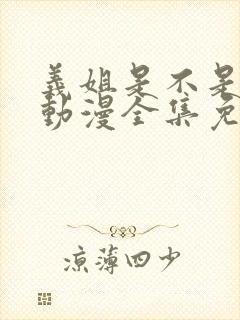 義姐是不是
動漫全集免
涼薄四少